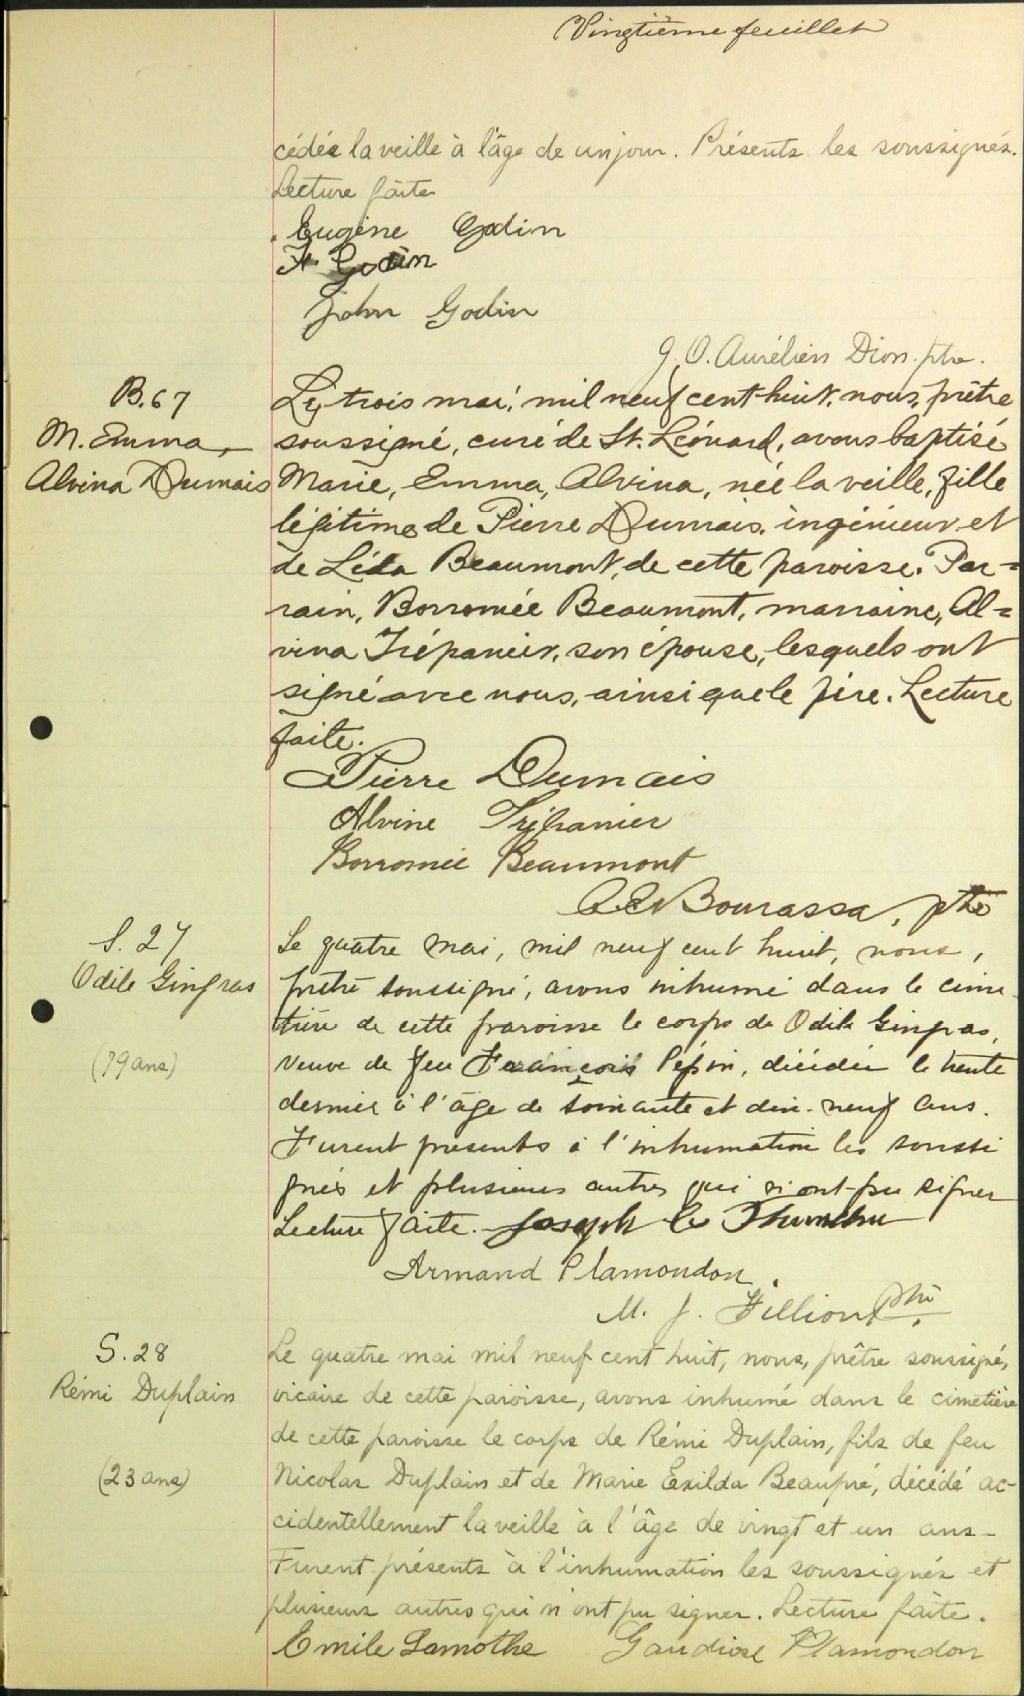 Vingtième feuillet
cédée la veille à l'âge de un jour. Présents les soussignés.
Lecture faite
Eugène Godin
F. Godin
John Godin
J. O. Aurélien Dion. ptre.
B. 67
M. Emma,
Alvina Dumais
Le trois mai, mil neuf cent huit, nous, prêtre
soussigné, curé de St. Léonard, avons baptisé
Marie, Emma, Alvina, née la veille, fille
légitime de Pierre Dumais, ingénieur, et
de Léda Beaumont, de cette paroisse. Par=
rain, Borromée Beaumont, marraine, Al=
vina Trépanier, son épouse, lesquels ont
signé avec nous, ainsi que le père. Lecture
faite.
Pierre Dumais
Alvine Trépanier
Borromée Beaumont
Bourassa, ptre
S. 27
Odile Gingras
(79 ans)
Le quatre mai, mil neuf cent huit, nous,
prêtre soussigné, avons inhumé dans le cime
tière de cette paroisse le corps de Odile Gingras,
veuve de feu François Pépin, décédée le trente
dernier à l'âge de soixante et dix-neuf ans.
Furent présents à l'inhumation les soussi
gnés et plusieurs autres qui n'ont pu signer
Lecture faite. Joseph
Armand Plamondon.
M. J. Fillion Ptre
S. 28
Rémi Duplain
(23 ans)
Le quatre mai mil neuf cent huit, nous, prêtre soussigné,
vicaire de cette paroisse, avons inhumé dans le cimetière
de cette paroisse le corps de Rémi Duplain, fils de feu
Nicolas Duplain et de Marie Exilda Beaupré, décédé ac-
cidentellement la veille à l'âge de vingt et un ans-
Furent présents à l'inhumation les soussignés et
plusieurs autres qui n'ont pu signer. Lecture faite.
Emile Lamothe Gaudiose Plamondon